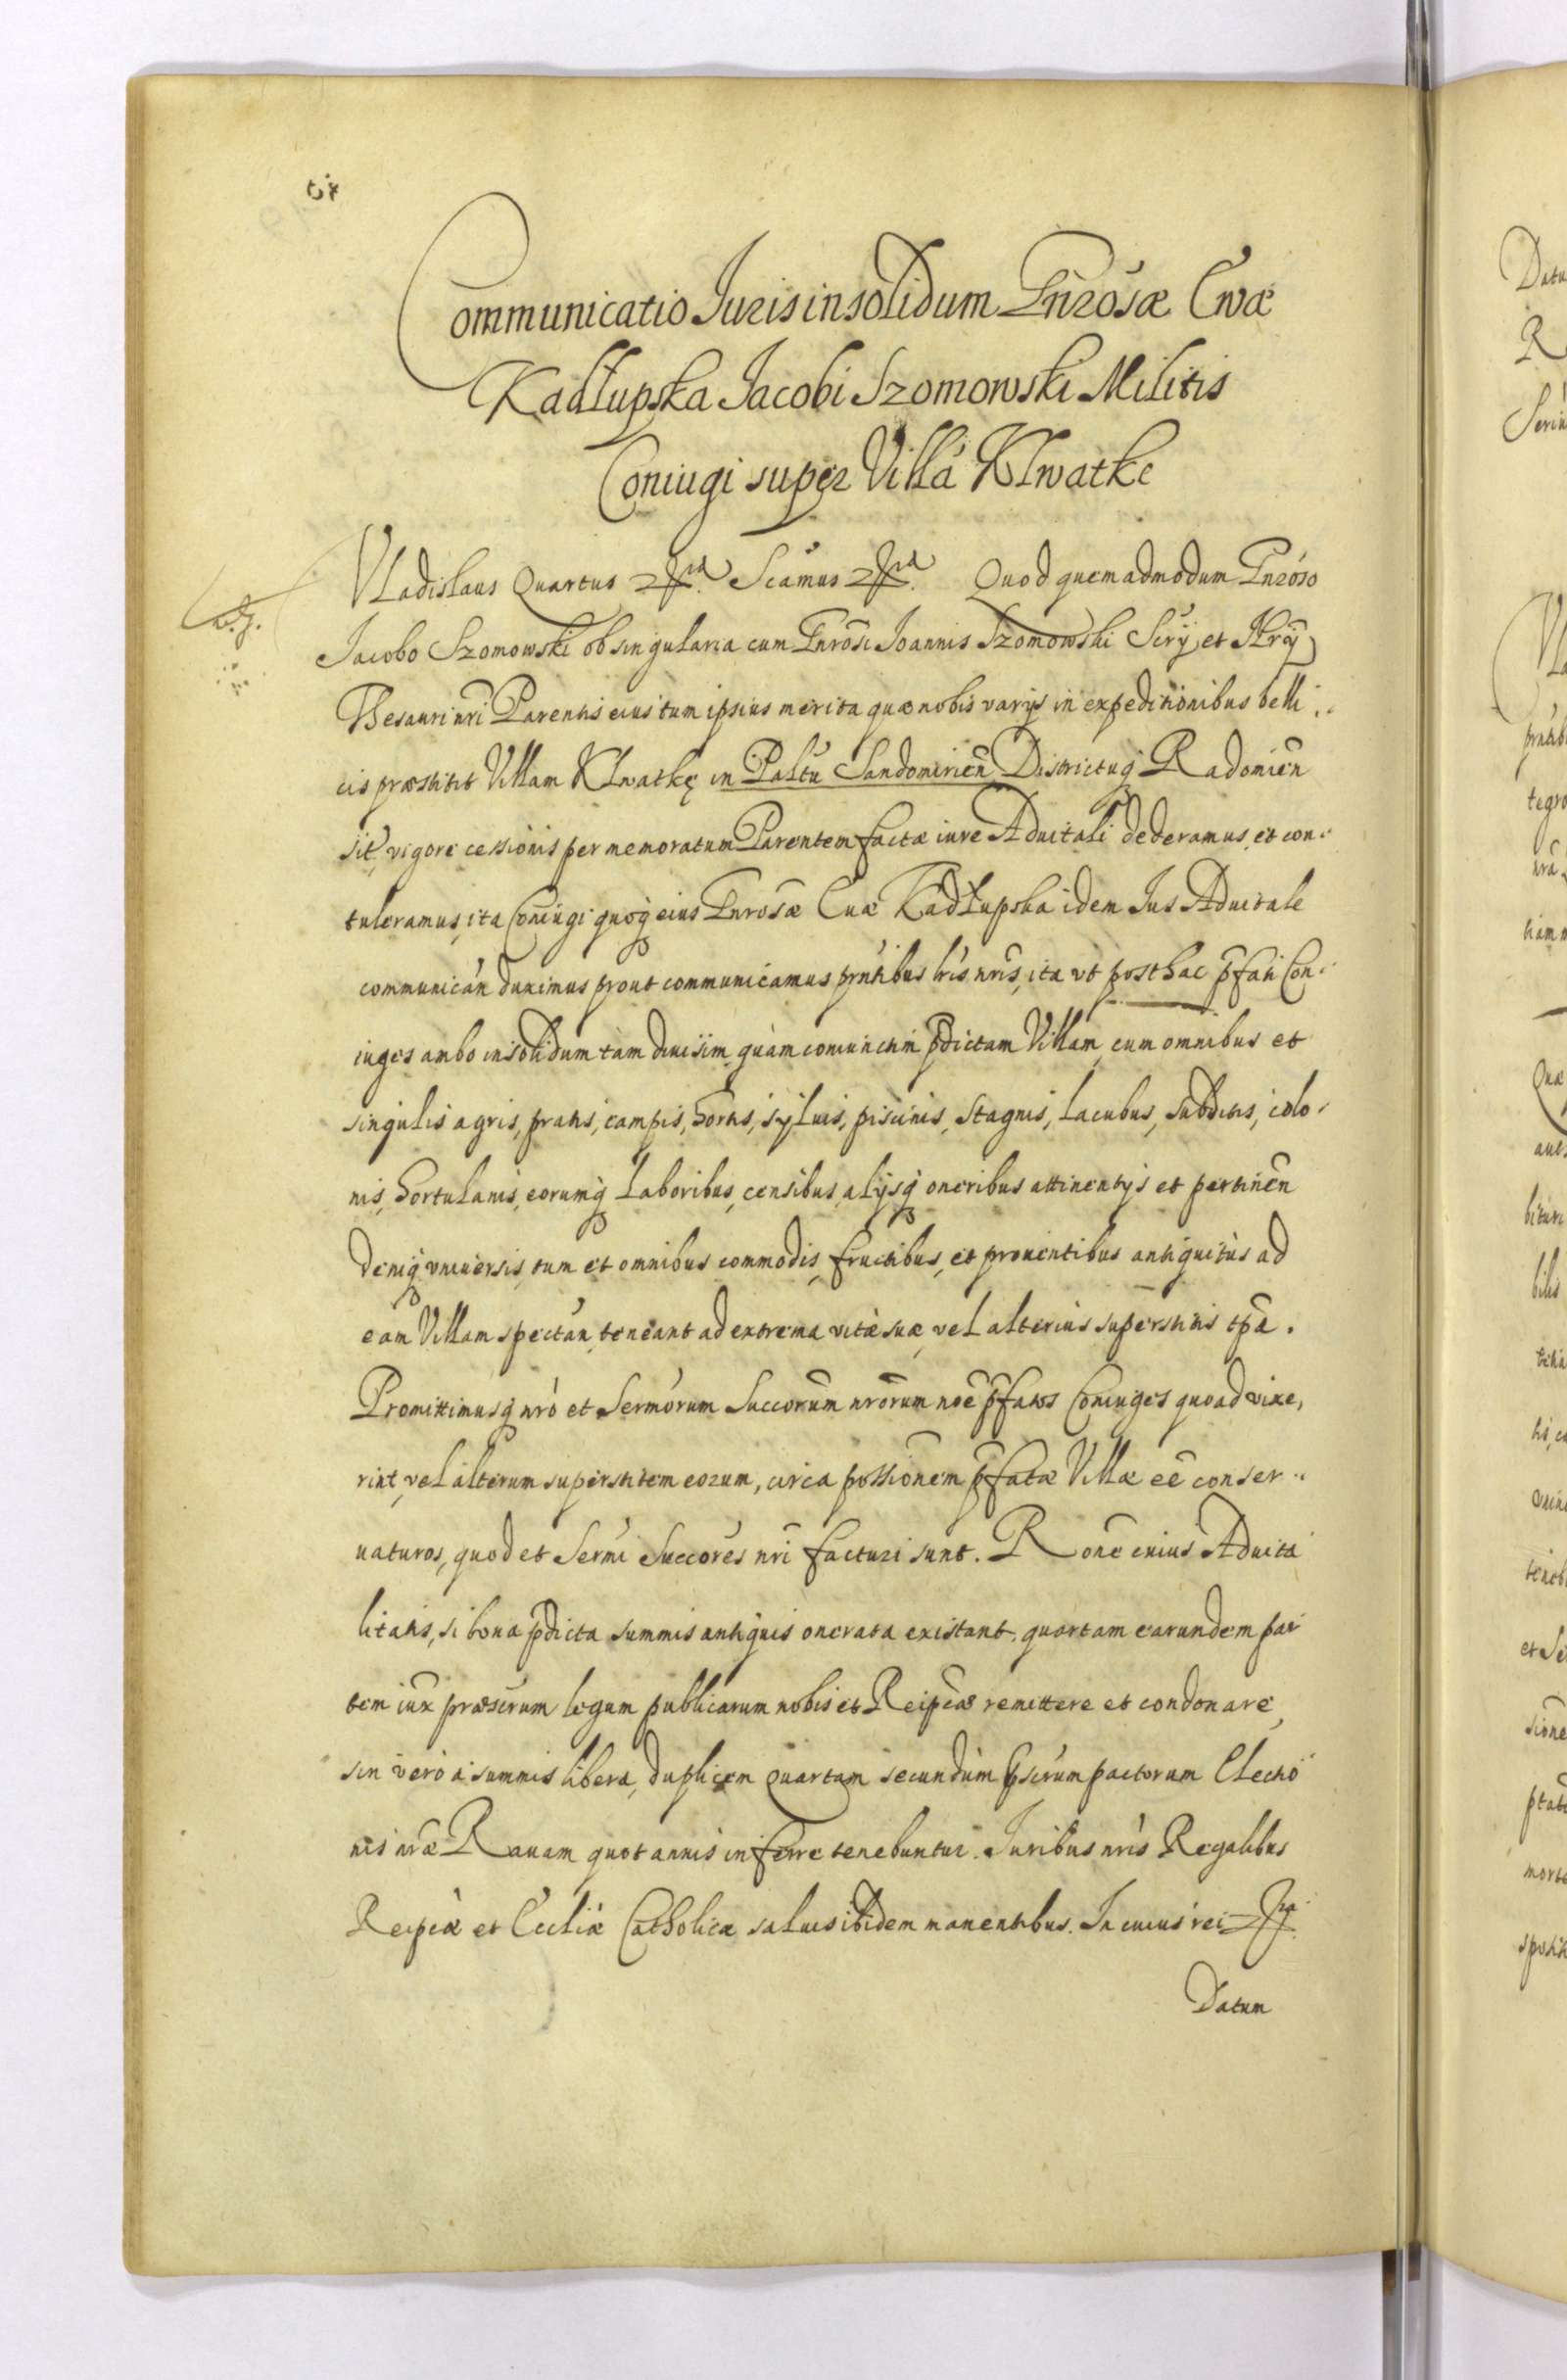 Communicatio Iuris in solidum Gnrosæ Evæ
Kadłupska Jacobi Szomowski Militis
Coniugi super Villa Klwatke
Vladislaus Quartus Scamus Quod quemadmodum Gnroso
Jacobo Szomowski ob singularia cum Gnrosi Joannis Szomowski Scry et
Thesauri nri Parentis eius tum ipsius merita quæ nobis varijs in expeditionibus belli
cis præstitit Villam Klwatkę in Paltu Sandomirien Districtuq Radomien
sit, vigore cessionis per memoratum Parentem factæ iure Aduitali dederamus et con
tuleramus, ita Coniugi quoq eius Gnrosæ Euæ Kadłupska idem Jus Aduitale
communican duximus prout communicamus prntibus lris nris, ita vt posthac pfati Con
iuges ambo insolidum tam diuisim quàm coniunctim pdictam Villam cum omnibus et
singulis agris, pratis, campis, hortis, syluis, piscinis, stagnis, lacubus, subditis, colo
nis, hortulanis, eorumq laboribus, censibus, alijsq oneribus attinentijs et pertinen
deniq vniuersis, tum et omnibus commodis, fructibus, et prouentibus antiquitùs ad
eam Villam spectan, teneant ad extrema vitæ suæ, vel alterius superstitis tpa.
Promittimusq nrò et Sermorum Succorum nrorum noe pfatos Coniuges quoad vixe,
rint, vel alterum superstitem eorum, circa possionem pfatæ Villæ ee conser
uaturos, quod et Sermi Succores nri facturi sunt. Rone cuius Aduita
litatis, si bona pdicta summis antiquis onerata existant, quartam earundem par
tem iux præscrum legum publicarum nobis et Reipcæ remittere et condonare,
sin verò a summis libera, duplicem quartam secundùm pscrum pactorum Electio
nis nræ Rauam quotannis inferre tenebuntur. Juribus nris Regalibus
Reipcæ et Eccliæ Catholicæ saluis ibidem manentibus. In cuius rei
Datum